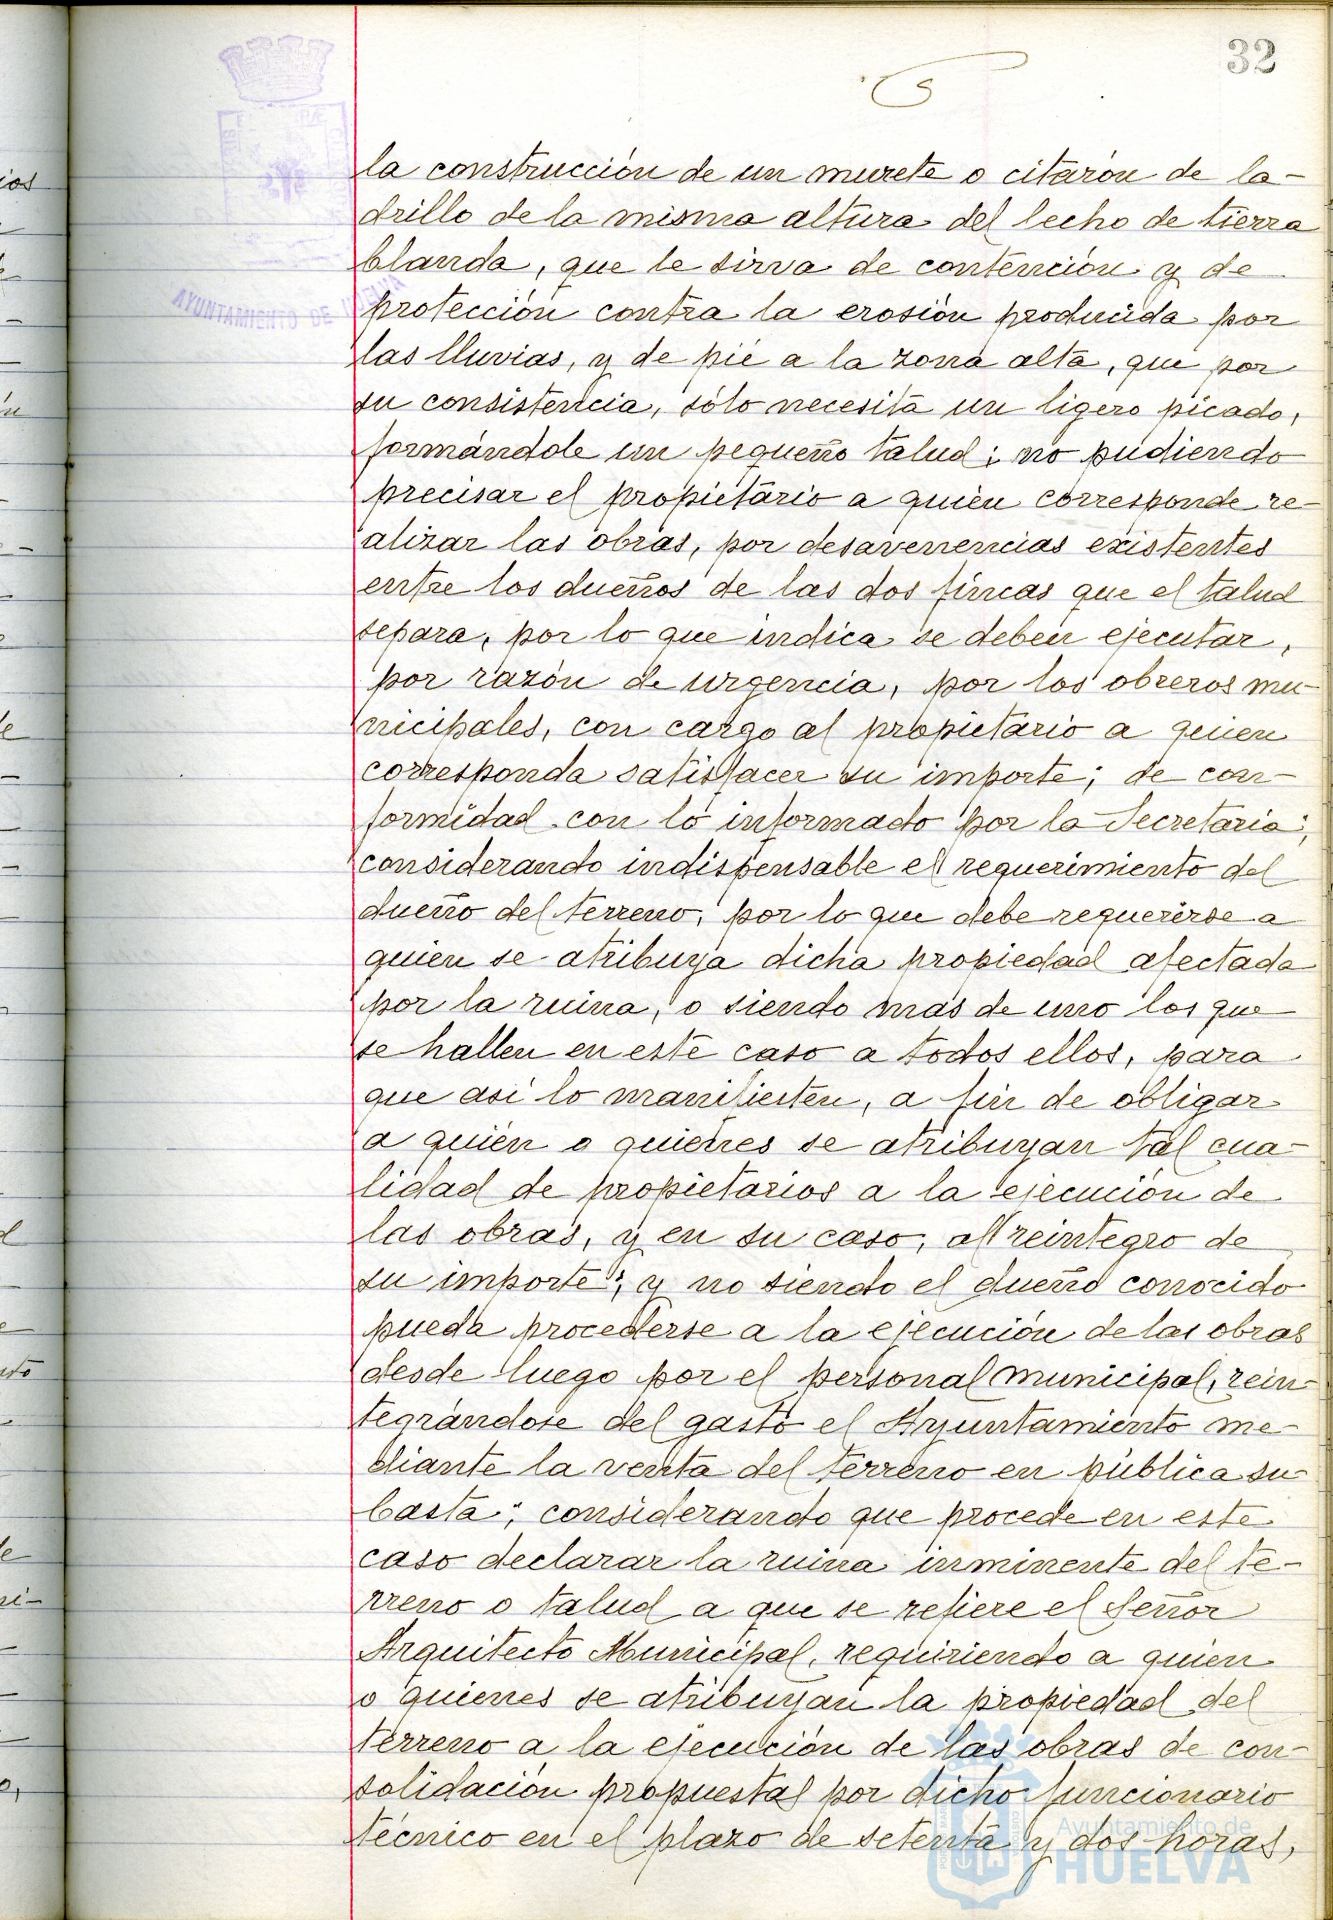 32
AYUNTAMIENTO DE HUELVA
la construcción de un murete o citarón de la-
drillo de la misma altura del lecho de tierra
blanda, que le sirva de contención y de
protección contra la erosión producida por
las lluvias, y de pié a la zona alta, que por
su consistencia, sólo necesita un ligero picado,
formándole un pequeño talud; no pudiendo
precisar el propietario a quien corresponde re-
alizar las obras, por desavenencias existentes
entre los dueños de las dos fincas que el talud
separa, por lo que indica se deben ejecutar,
por razón de urgencia, por los obreros mu-
nicipales, con cargo al propietario a quien
corresponda satisfacer su importe; de con-
formidad con lo informado por la Secretaria;
considerando indispensable el requerimiento del
dueño del terreno, por lo que debe requerirse a
quien se atribuya dicha propiedad afectada
por la ruina, o siendo mas de uno los que
se hallen en este caso a todos ellos, para
que asi lo manifiesten, a fin de obligar
a quién o quienes se atribuyan tal cua-
lidad de propietarios a la ejecución de
las obras, y en su caso, al reintegro de
su importe; y no siendo el dueño conocido
pueda procederse a la ejecución de las obras
desde luego por el personal municipal, rein-
tegrándose del gasto el Ayuntamiento me-
diante la venta del terreno en pública su-
basta; considerando que procede en este
caso declarar la ruina inminente del te-
rreno o talud a que se refiere el Señor
Arquitecto Municipal, requiriendo a quien
o quienes se atribuyan la propiedad del
terreno a la ejecución de las obras de con-
solidación propuestas por dicho funcionario
técnico en el plazo de setenta y dos horas,
Ayuntamiento de
HUELVA